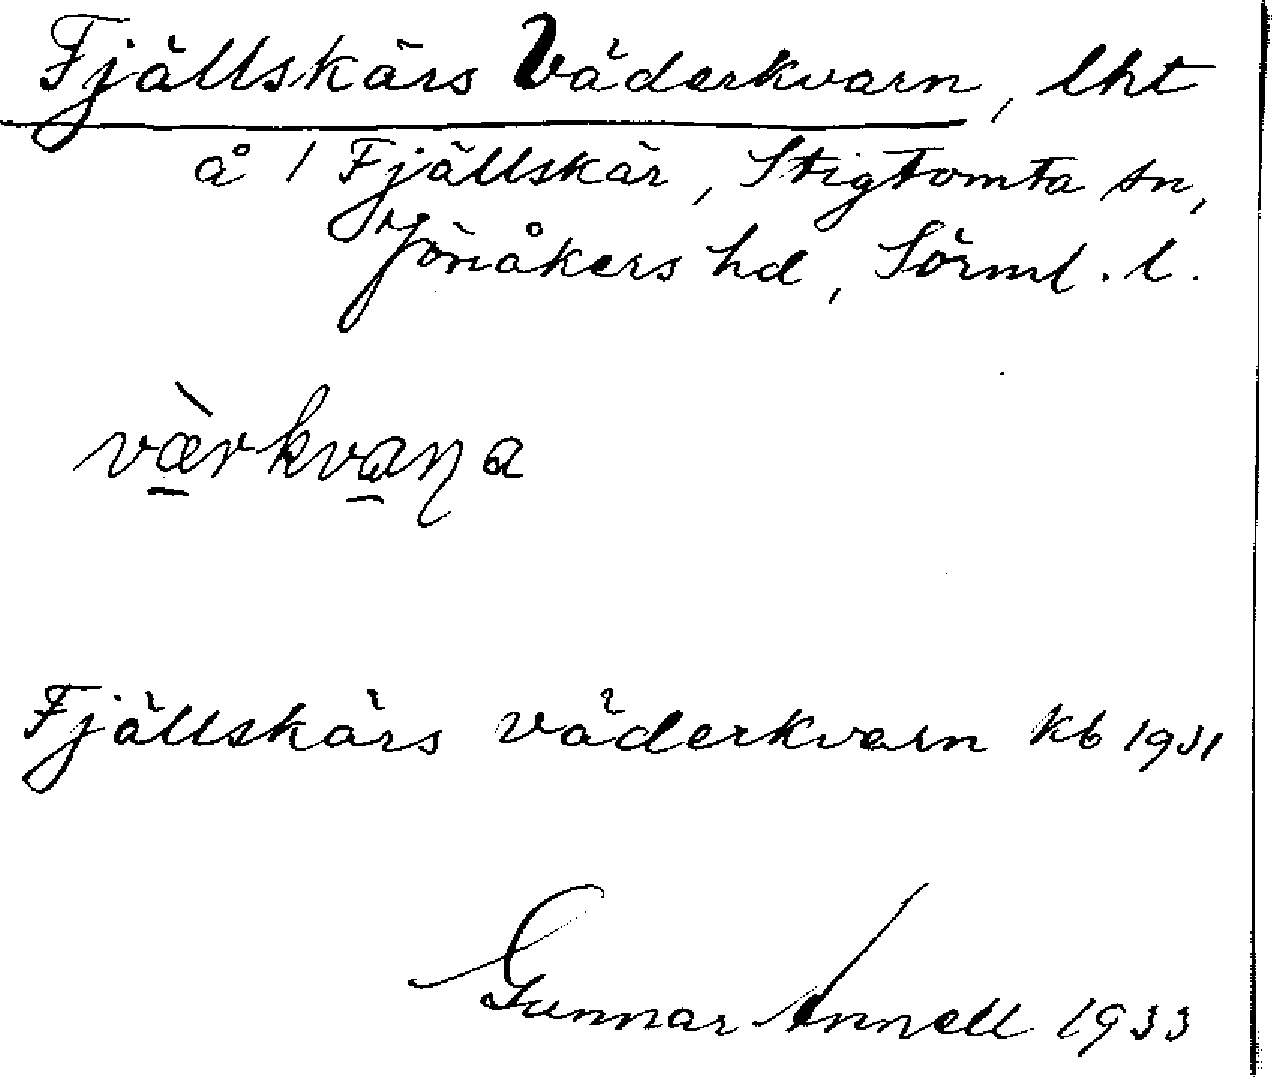 Fjällskärs Väderkvarn, lht
å 1 Fjällskär, Stigtomta sn,
Jönåkers hd, Sörml. l.
væ̀rkvaɳa
Fjällskärs väderkvarn kb 1931
Gunnar Annell 1933